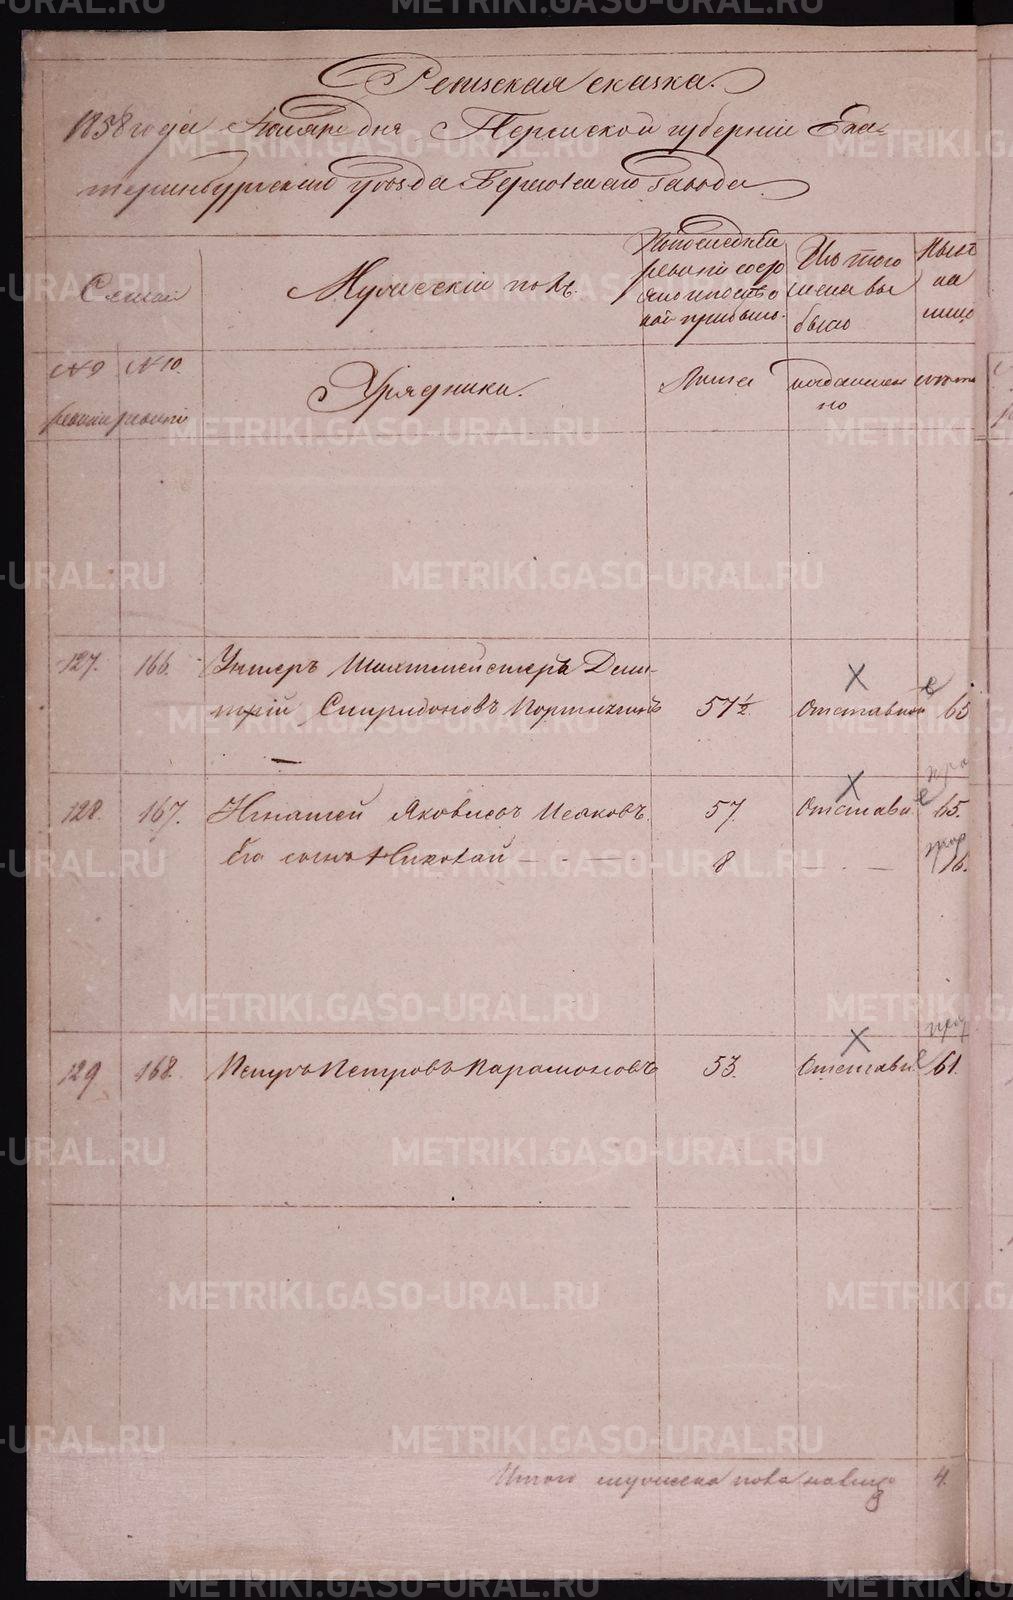 Ревизская сказка.
1858 года Ноября дня Пермской губернiи Ека-
теринбургскаго уѣзда Березовскаго завода.
Семьи
Мужескiй полъ.
По последней
ревизiи состо
яло и послѣ
той прибыло.
Изъ того
числа вы
было
Ныне
на
лицо
№ 9
ревизiи
№ 10.
ревизiи
Урядники.
Лѣта
когда имен
но
лѣта
127. 166. Унтеръ Шихтмейстеръ Дми-
трiй Спиридоновъ Портнягинъ 57½. Отставной 65
128. 167. Игнатей Яковлевъ Исаковъ. 57. Отставн. 65.
Его сынъ Николай 8 16.
129 168. Петръ Петровъ Парамоновъ 53. Отставн. 61.
Итого мужеска пола налицо 4.
METRIKI.GASO-URAL.RU